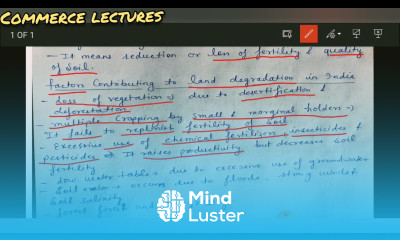 COMMERCE LECTURES
1 OF 1
- It means reduction or loss of fertility & quality
of soil.
factors Contributing to land degradation in India
- Loss of vegetation due to desertification &
deforestation
multiple Cropping by small & marginal holders →
It fails to replenish fertility of soil
- Excessive use of chemical fertilizers, insecticides &
pesticides → It raises productivity but decreases soil
fertility
- Low water table due to excessive use of groundwater
- Soil erosion occurs due to floods, strong winds
Soil salinity
Mind
Luster